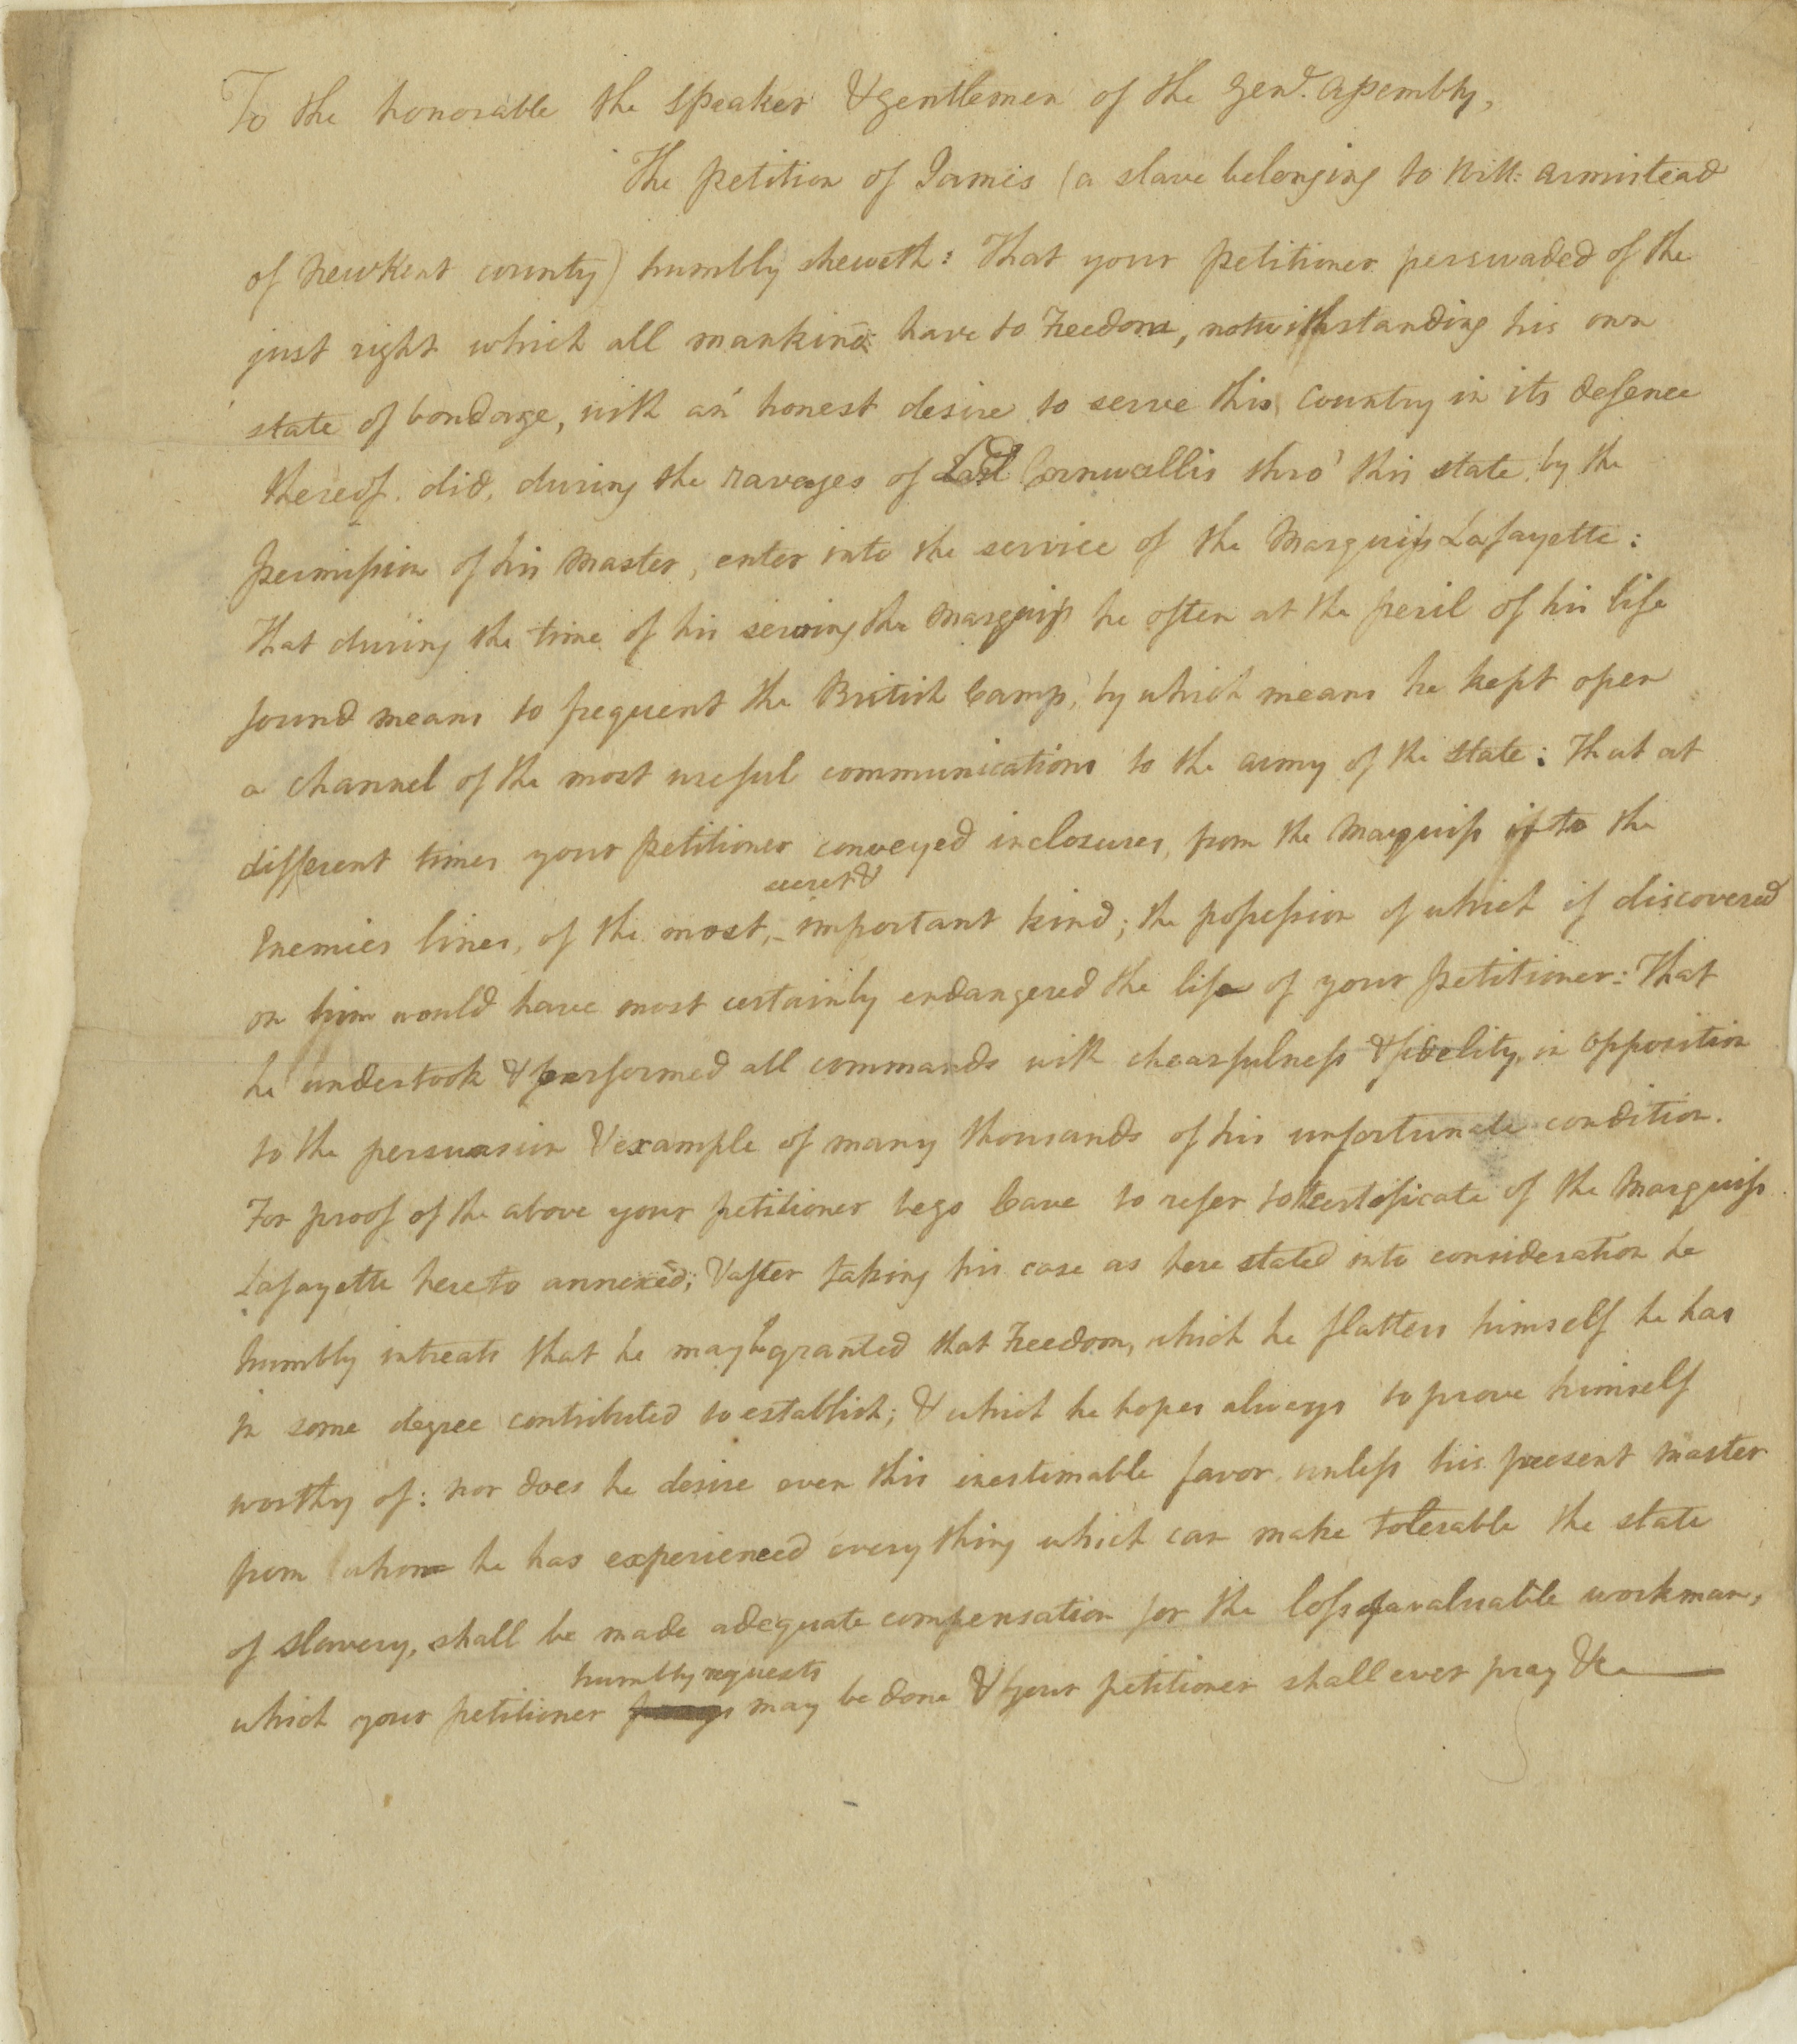 To the honorable the speaker & gentlemen of the Genl. Assembly,
The petition of James (a slave belonging to Will: Armistead
of Newkent county) humbly sheweth: That your petitioner persuaded of the
just right which all mankind have to Freedom, notwithstanding his own
state of bondage, with an honest desire to serve this Country in its defence
thereof. did, during the ravages of Lord Cornwallis thro' this state, by the
permission of his Master, enter into the service of the Marquiss Lafayette:
That during the time of his serving the Marquiss he often at the peril of his life
found means to frequent the British Camp, by which means he kept open
a channel of the most useful communications to the army of the state: That at
different times your petitioner conveyed inclosures, from the Marquiss into the
secret &
Enemies lines, of the most, important kind; the possession of which if discovered
on him would have most certainly endangered the life of your petitioner: That
he undertook & performed all commands with chearfulness & fidelity, in opposition
to the persuasion & example of many thousands of his unfortunate condition.
For proof of the above your petitioner begs leave to refer to the certificate of the Marquiss
Lafayette hereto annexed; & after taking his case as here stated into consideration he
humbly intreats that he may be granted that Freedom, which he flatters himself he has
in some degree contributed to establish; & which he hopes always to prove himself
worthy of: nor does he desire even this inestimable favor, unless his present master
from whom he has experienced every thing which can make tolerable the state
of slavery, shall be made adequate compensation for the loss of a valuable workman,
humbly requests
which your petitioner may be done & your petitioner shall ever pray &c